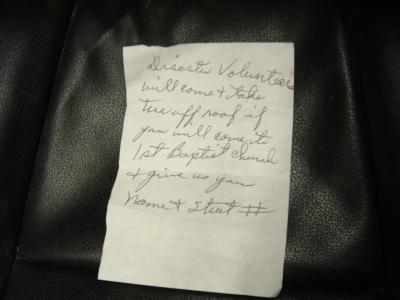 Disaster Volunteers
will come & take
tree off roof if
you will come to
1st Baptist Church
& give us your
Name & Street #